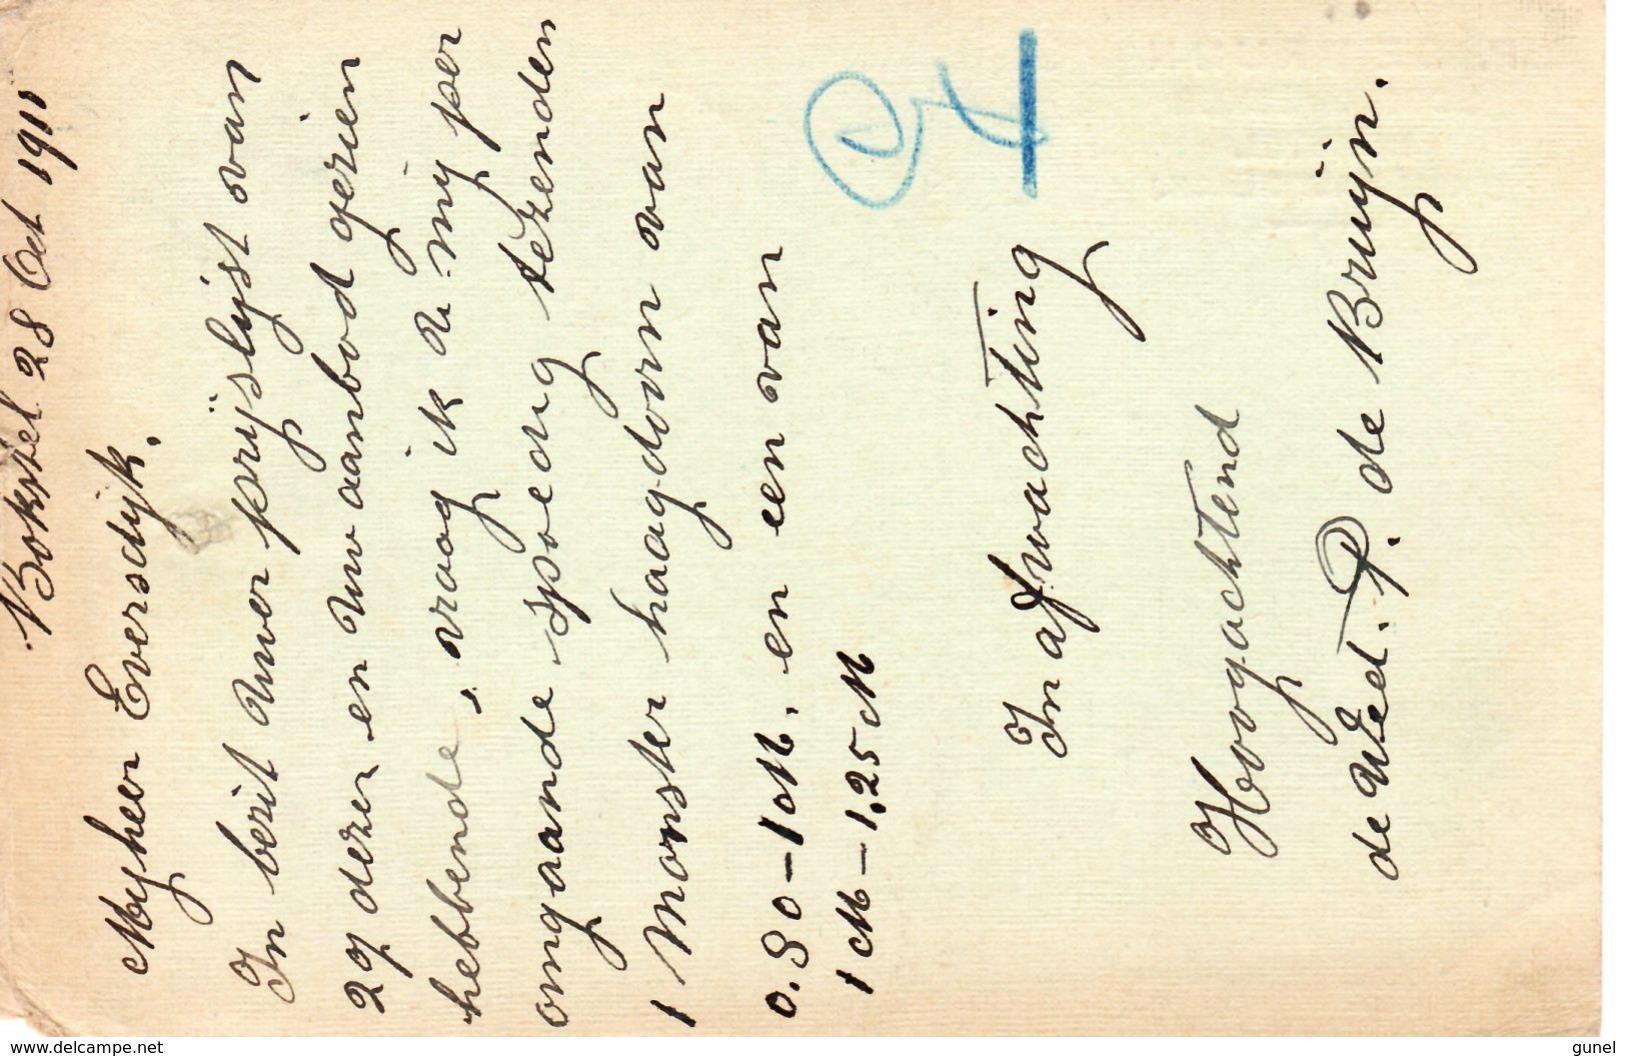 Bokstel 28 Oct 1911
Mijheer Eversdijk.
In bezit Uwer prijslijst van
27 dezer en Uw aanbod gezien
hebbende, vraag ik U mij per
omgaande spoedig tezenden
1 Monster haagdoorn van
0.80 - 1 M. en een van
1 M - 1.25 M
In afwachting
Hoogachtend
de Wed. P. de Bruijn.
www.delcampe.net
gunel